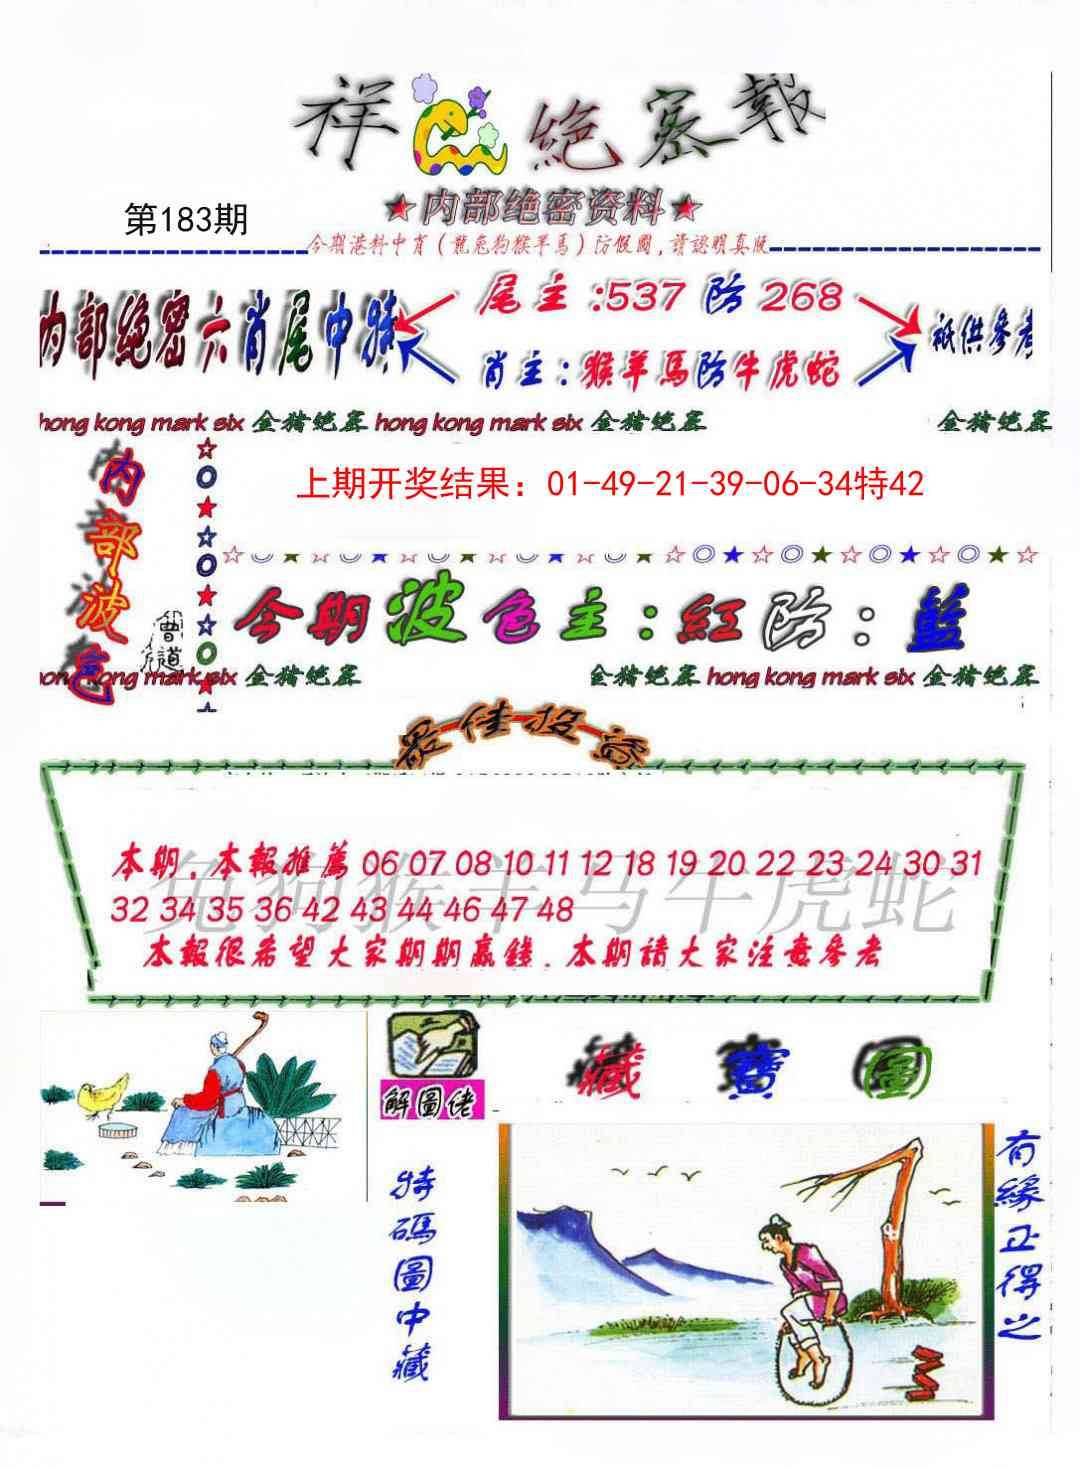 祥 絶密報
★内部绝密资料★
第183期
今期港料中肖（龍兔狗猴羊馬）防假圖,請認明真版
内部絶密六肖尾中特
尾主:537防268
肖主:猴羊馬防牛虎蛇
祇供參考
hong kong mark six 金猪绝密 hong kong mark six 金猪绝密 金猪绝密
内部波色
曾道
上期开奖结果：01-49-21-39-06-34特42
今期波色主:紅防:藍
hong kong mark six 金猪绝密 金猪绝密 hong kong mark six 金猪绝密
最佳投
兔狗猴羊马牛虎蛇
本期,本報推薦 06 07 08 10 11 12 18 19 20 22 23 24 30 31
32 34 35 36 42 43 44 46 47 48
本報很希望大家期期贏錢,本期請大家注意參考
解圖佬
藏寶圖
特碼圖中藏
有緣正得之